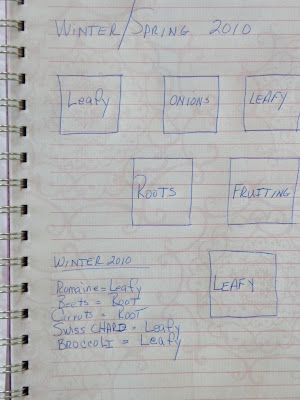 WINTER/SPRING 2010
Leafy ONIONS LEAFY
ROOTS FRUITING
LEAFY
WINTER 2010
Romaine = Leafy
Beets = ROOT
Carrots = ROOT
SWISS CHARD = Leafy
BROCCOLI = Leafy